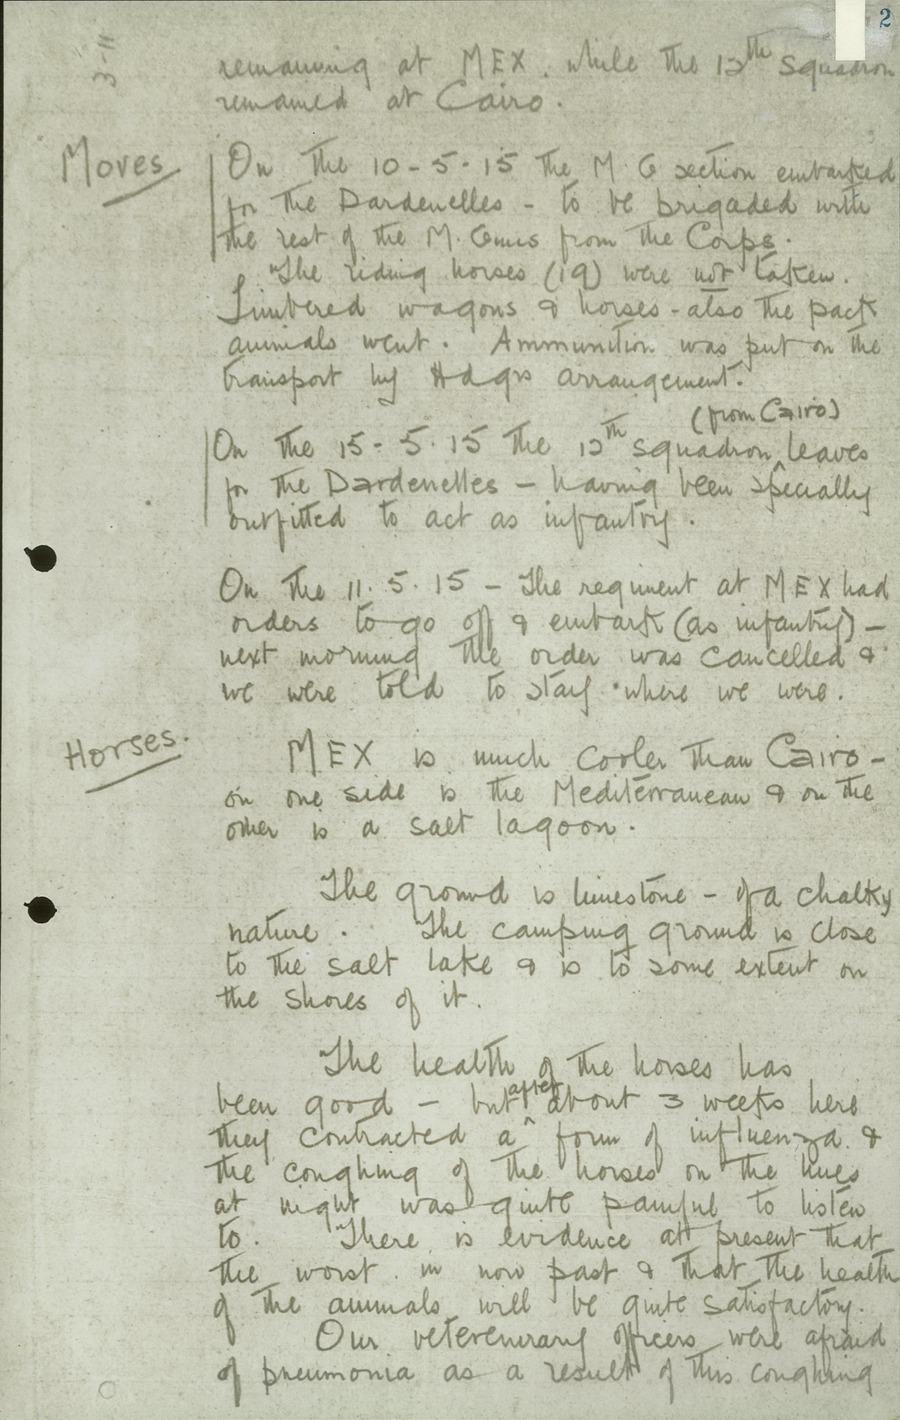 2
3-11
remaining at MEX. while the 12th Squadron
remained at Cairo.
Moves
On the 10-5-15 the M.G section embarked
for the Dardenelles - to be brigaded with
the rest of the M. Guns from the Corps.
The riding horses (19) were not taken.
Limbered wagons & horses - also the pack
animals went. Ammunition was put on the
transport by Hdqrs arrangement.
(from Cairo)
On the 15-5-15 the 12th squadron leaves
for the Dardenelles - having been specially
outfitted to act as infantry.
On the 11.5.15 - The regiment at MEX had
orders to go off & embark (as infantry) -
next morning the order was cancelled &
we were told to stay where we were.
Horses.
MEX is much cooler than Cairo -
on one side is the Mediterranean & on the
other is a salt lagoon.
The ground is limestone - of a chalky
nature. The camping ground is close
to the salt lake & is to some extent on
the shores of it.
The health of the horses has
been good - but after about 3 weeks here
they contracted a form of influenza &
the coughing of the horses on the lines
at night was quite painful to listen
to. There is evidence at present that
the worst in now past & that the health
of the animals will be quite satisfactory.
Our veterenerary officers were afraid
of pneumonia as a result of this coughing